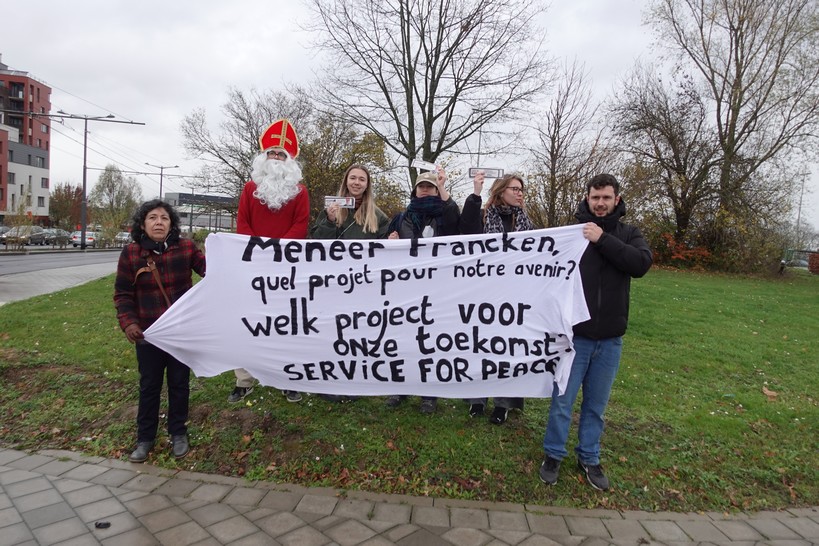 Meneer Francken,
quel projet pour notre avenir?
welk project voor
onze toekomst
SERVICE FOR PEACE